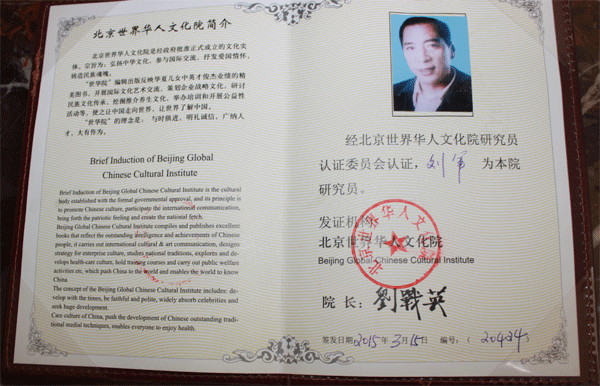 北京世界华人文化院简介
北京世界华人文化院是经政府批准正式成立的文化实
体。宗旨为：弘扬中华文化，参与国际交流，抒发爱国情怀，
铸造民族魂魄。
“世华院”编辑出版反映华夏儿女中英才俊杰业绩的精
美图书，开展国际文化艺术交流，策划企业战略文化，研讨
民族文化传承，挖掘推介养生文化，举办培训和开展公益性
活动等，使之让中国走向世界，让世界了解中国。
“世华院”的理念是：与时俱进，明礼诚信，广纳人
才，大有作为。
Brief Induction of Beijing Global
Chinese Cultural Institute
Brief Induction of Beijing Global Chinese Cultural Institute is the cultural
body established with the formal governmental approval, and its principle is
to promote Chinese culture, participate the international communication,
bring forth the patriotic feeling and create the national fetch.
Beijing Global Chinese Cultural Institute compiles and publishes excellent
books that reflect the outstanding intelligence and achievements of Chinese
people, it carries out international cultural & art communication, designs
strategy for enterprise culture, studies national traditions, explores and de-
velops health-care culture, hold training courses and carry out public welfare
activities etc, which push China to the world and enables the world to know
China.
The concept of the Beijing Global Chinese Cultural Institute includes: de-
velop with the times, be faithful and polite, widely absorb celebrities and
seek huge development.
Care culture of China, push the development of Chinese outstanding tradi-
tional medial techniques, enables everyone to enjoy health.
经北京世界华人文化院研究员
认证委员会认证，刘军 为本院
研究员。
发证机构：
北京世界华人文化院
Beijing Global Chinese Cultural Institute
北京世界华人文化院
院 长：劉戰英
签发日期2015年3月15日 编号：（ 20424）